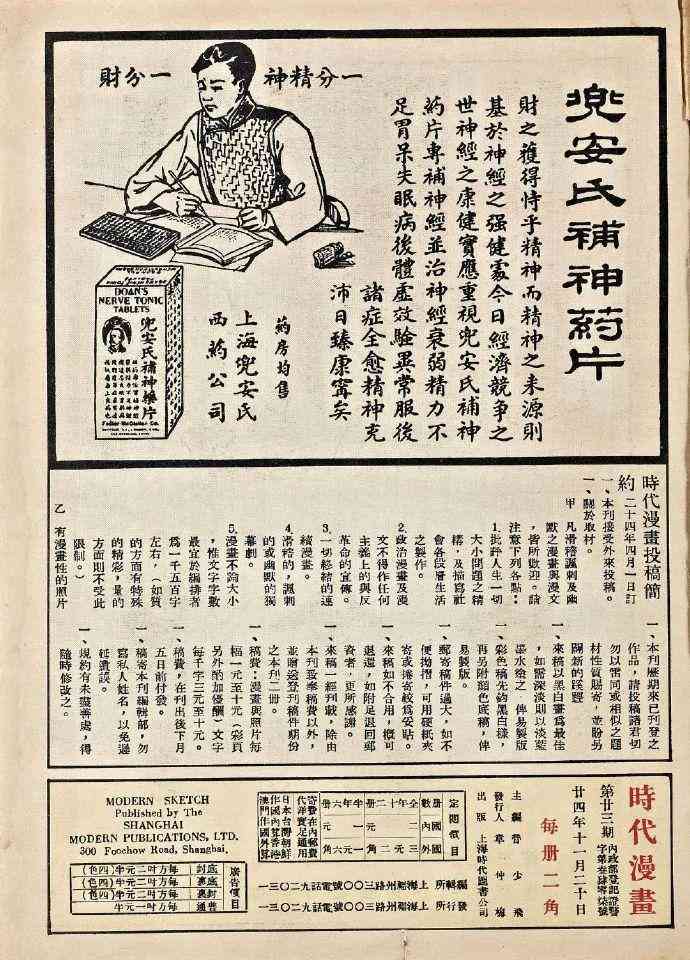 一分精神一分財
兜安氏補神葯片
財之獲得恃乎精神而精神之來源則
基於神經之强健處今日經濟競爭之
世神經之康健實應重視兜安氏補神
葯片專補神經並治神經衰弱精力不
足胃呆失眠病後體虛效驗異常服後
諸症全愈精神充
沛日臻康寗矣
葯房均售
上海兜安氏
西葯公司
DOAN'S
NERVE TONIC
TABLETS
兜安氏補神藥片
Foster-McClellan Co.
時代漫畫投稿簡
約
二十四年四月一日訂
一、本刊接受外來投稿。
一、關於取材。
甲 凡滑稽諷刺及幽
默之漫畫與漫文
，皆所歡迎。請
注意下列各點：
1.批評人生一切
大小問題之精
構，及描寫社
會各段層生活
之製作。
2.政治漫畫及漫
文不得作任何
主義上的與反
革命的宣傳。
3.一切終結的連
續漫畫。
4.滑稽的，諷刺
的或幽默的獨
幕劇。
5.漫畫不論大小
，惟文字字數
最宜於編排者
爲一千五百字
左右，（如質
的方面有特殊
的精彩，量的
方面則不受此
限制。）
乙 有漫畫性的照片
一、本刊歷期來已刊登之
作品，請投稿諸君切
勿以雷同或相似之題
材性質賜寄，並盼另
闢新的蹊徑
一、來稿以黑白畫爲最佳
，如需深淡則以淡藍
墨水塗之，俾易製版
一、彩色稿先鈎黑白樣，
再另附顏色底稿，俾
易製版。
一、郵寄稿件過大，如不
便拗摺，可用硬紙夾
寄或捲寄較爲妥貼。
一、來稿如不合用，概可
退還，如附足退回郵
資者，更所感謝。
一、來稿一經刊載，除由
本刊致奉稿費以外，
並贈送登刊稿件期份
之本刊二册。
一、稿費：漫畫與照片每
幅一元至十元（彩頁
另外酌加優酬）文字
每千字三元至十元。
一、稿費，在刊出後下月
五日前付發。
一、稿寄本刊編輯部，勿
寫私人姓名，以免遲
延遺誤。
一、規約有未盡善處，得
隨時修改之。
時代漫畫
第廿三期
內政部登記證警
字第叁肆零柒號
廿四年十一月二十日
每册二角
主編 魯少飛
發行人 章仲梅
出版 上海時代圖書公司
定閱價目
册數 國內 國外
全年十二册 二元 三元
半年六册 一元
寄費在內郵票
代洋實足通用
日本台灣朝鮮
作國內算香港
澳門作國外算
編輯所 上海福州路三〇〇號電話九二〇三一
發行所 上海福州路三〇〇號電話九二〇三一
MODERN SKETCH
Published by The
SHANGHAI
MODERN PUBLICATIONS, LTD.
300 Foochow Road, Shanghai.
廣告價目
底封 每方吋二元半（四色）
裏底 每方吋二元（四色）
封裏 每方吋二元（四色）
普通 每方吋一元半